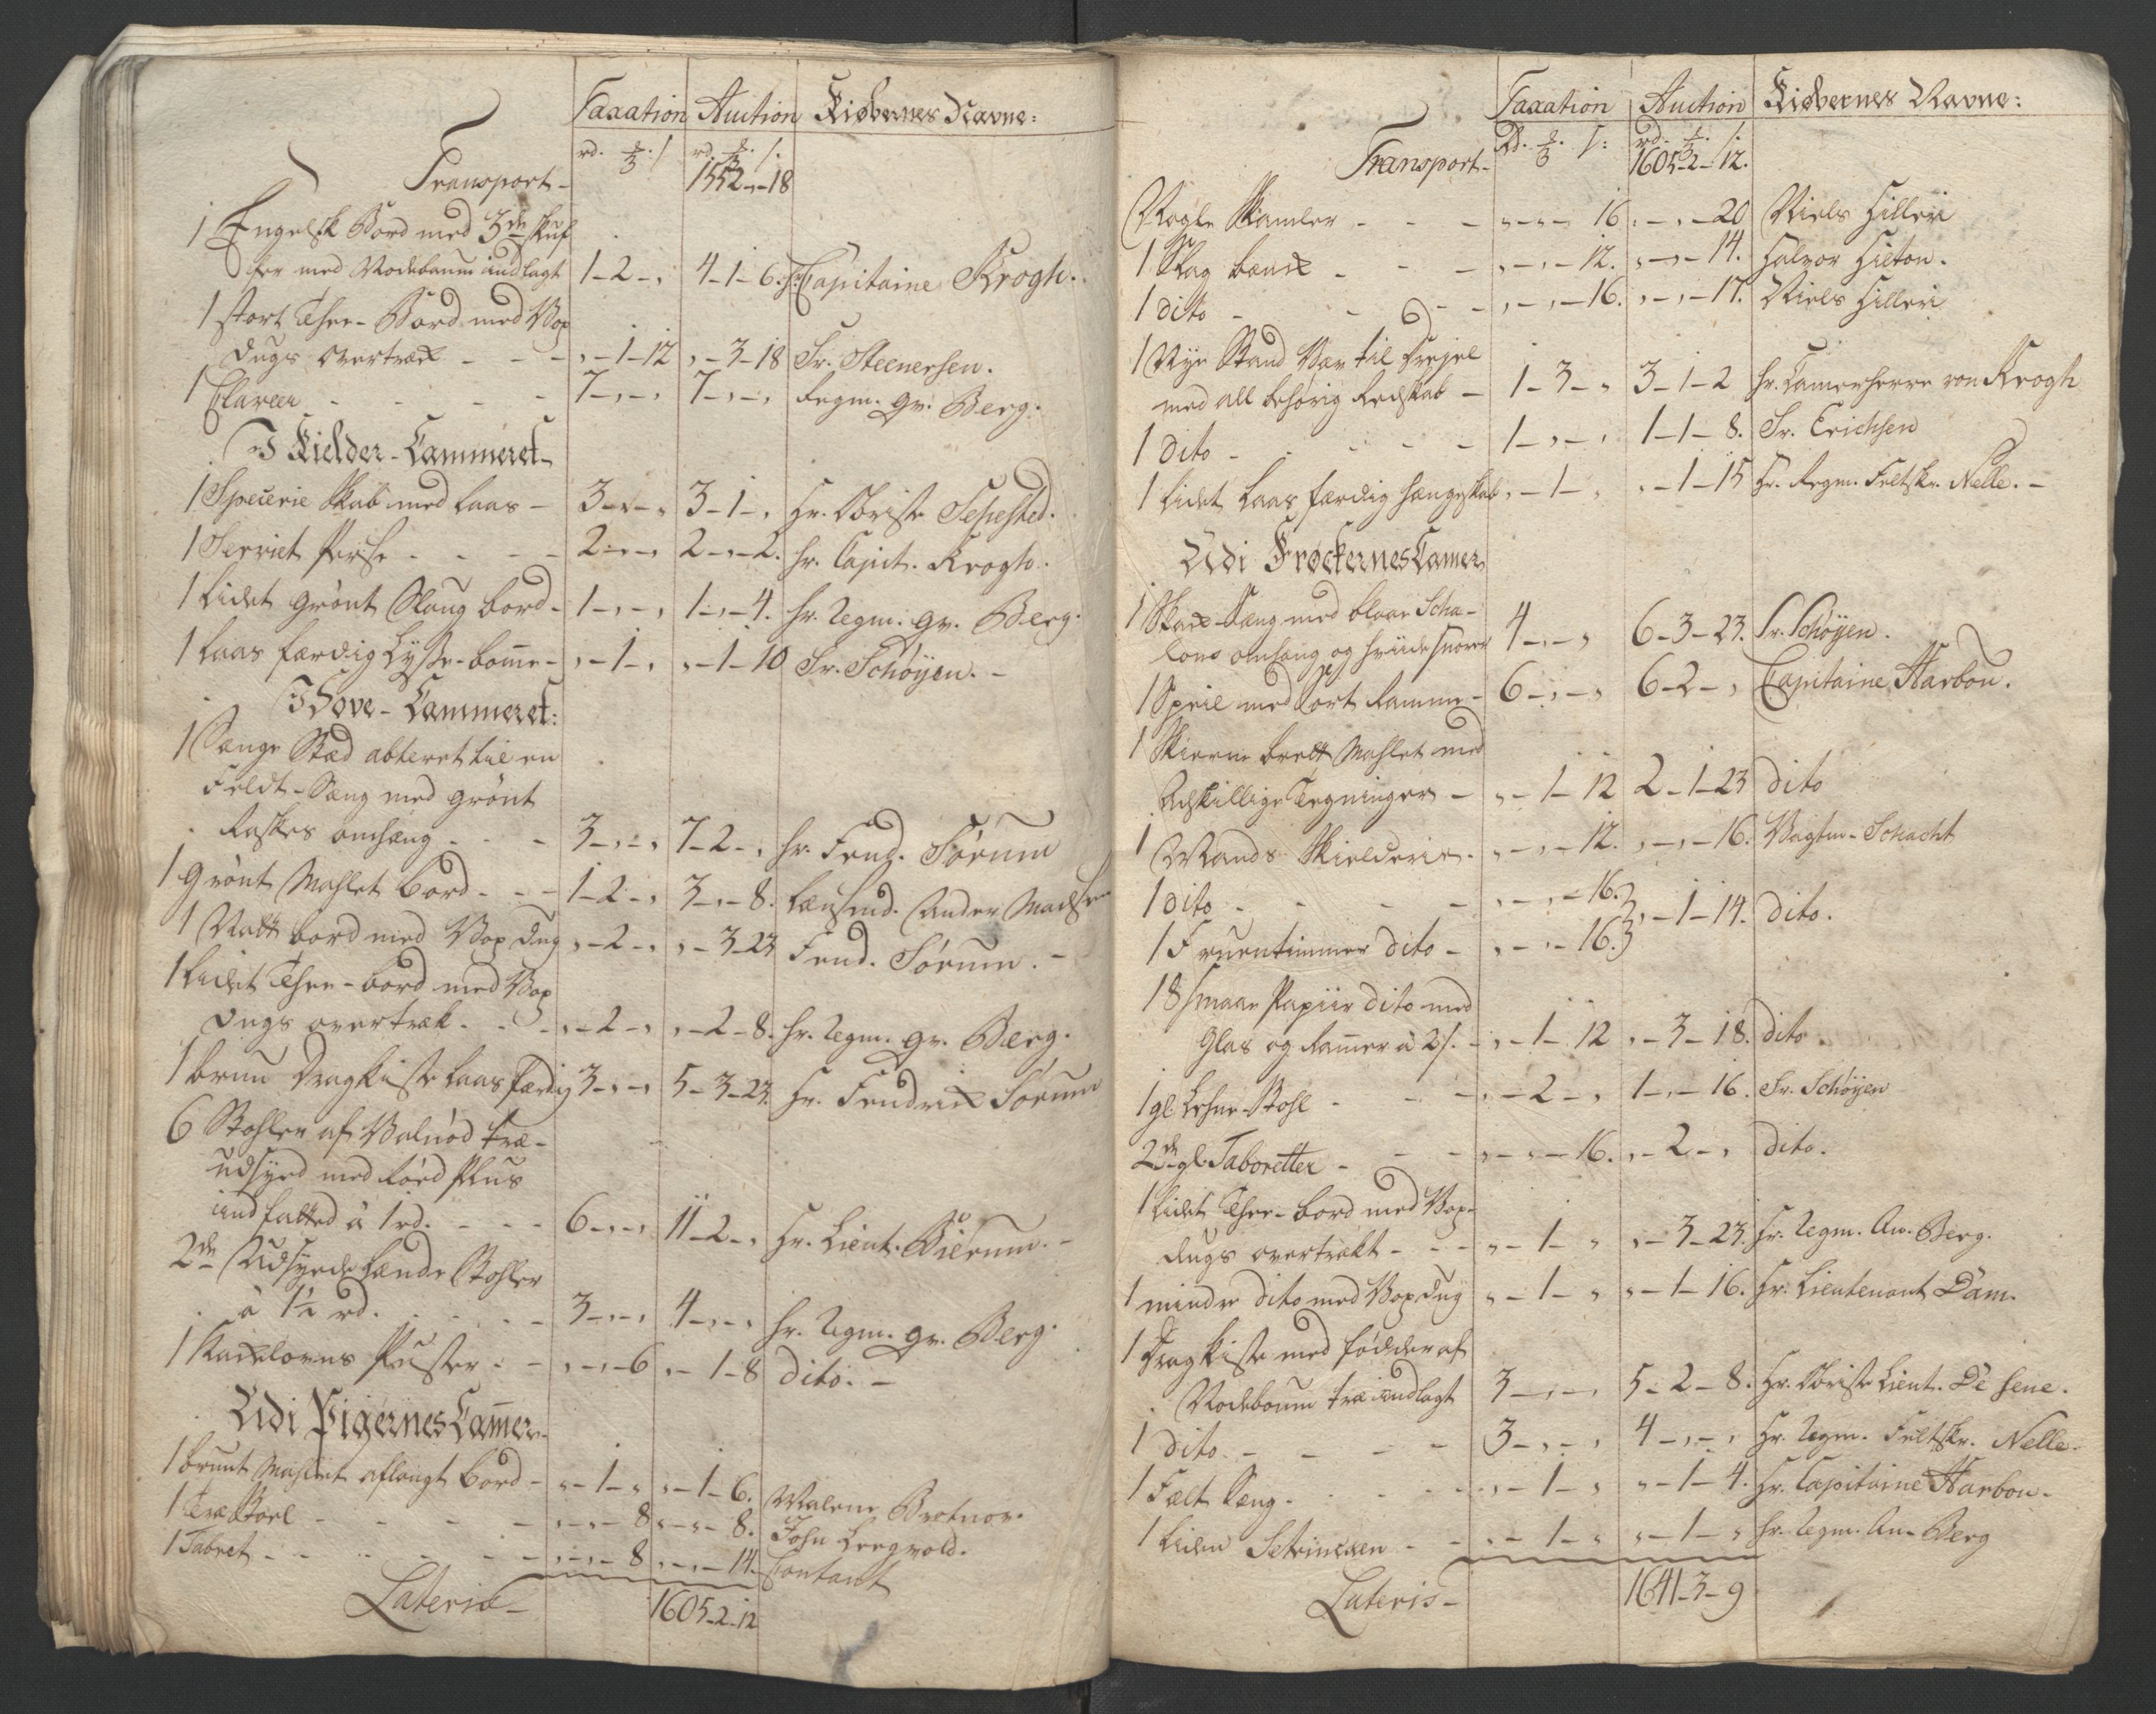 Taxation Auction Kiøbernes Navne:
rd. ⅔. /. rd. ⅔. /.
Transport - 1552 - „ - 18
1 Engelsk Bord med 3de Skuf
fer med Rodebaum indlagt 1 - 2 - „ 4 - 1 - 6. hr. Capitaine Krogh.
1 stort Thee - Bord med Vox
dugs overtræk - - - „ - 1 - 12 „ - 3 - 18 Sr. Steenersen.
1 Claveer - - - - 7 - „ - „ 7 - „ - „ Regm. qv. Berg.
I Kielder - Cammeret -
1 Specerie Skab med Laas - 3 - „ - „ 3 - 1 - „ Hr. Obriste Sehested.
1 Serviet Perse - - - - 2 - „ - „ 2 - „ - 2. hr. Capit. Krogh.
1 Lidet grønt Slaug bord - 1 - „ - „ 1 - „ - 4. hr. Regm. qv. Berg.
1 Laas færdig Lysse - bomme - „ - 1 - „ „ - 1 - 10 Sr. Schøyen. -
I Sove - Cammeret:
1 Senge Sted abteret til en
Feldt - Seng med grønt
Raskes omheng - - - 3 - „ - „ 7 - 2 - „ hr. Fend. Sørum
1 grønt Mahlet bord - - - 1 - 2 - „ 3 - „ - 8. Lensmd. Anders Madsen
1 Natt bord med Vox dug „ - 2 - „ „ - 3 - 23 Fend. Sørum. -
1 Lidet Thee - bord med Vox
dugs overtræk - - - „ - 2 - „ „ - 2 - 8. hr. Regm. qv. Berg.
1 bruun Dragkiste Laas færdig 3 - „ - „ 5 - 3 - 23. Hr. Fendrik Sørum
6 Stohler af Valnød Træ -
udsyed med Røed Plus
indfatted à 1 rd. - - - 6 - „ - „ 11 - 2 - „ Hr. Lieut. Bierum. -
2de Udsyede Lænde Stohler
à 1½ rd. - - - - 3 - „ - „ 4 - „ - „ hr. Regm. qv. Berg.
1 Kackelovns Puster - - „ - „ - 6 „ - 1 - 8 dito. -
Udi Pigernes Cammer -
1 bruunt Mahlet aflangt bord - „ - 1 - „ „ - 1 - 6. Malene
1 Træ Stoel - - - - „ - „ - 8 „ - „ - 8. John
1 Tabret - - - - - „ - „ - 8 „ - „ - 14. Contant
Lateris - 1605 - 2 - 12
Taxation Auction Kiøbernes Navne:
Rd. ⅔. /: rd. ⅔. /.
Transport - 1605 - 2 - 12.
Nogle Skamler - - - „ - „ - 16 „ - „ - 20 Niels Hilleri
1 Slag benk - - - „ - „ - 12. „ - „ - 14. Halvor Hilton.
1 dito - - - - „ - „ - 16. „ - „ - 17. Niels Hilleri
1 Nye Stand Væv til Drejel
med all behørig Redskab - 1 - 3 - „ 3 - 1 - 2 hr. Camerherre von Krogh
1 dito - - - - 1 - „ - „ 1 - 1 - 8. Sr. Erichsen
1 Lidet Laas færdig hengeskab „ - 1 - „ „ - 1 - 15 Hr. Regm. Feltskr. Nelle. -
Udi Frøckernes Camer
1 Skax - Seng med blaae Scha -
lons omheng og hviide Snorer 4 - „ - „ 6 - 3 - 23. Sr. Schøyen.
1 Speil med Sort Ramme - 6 - „ - „ 6 - 2 - „ Capitaine Harbou.
1 Skierm brett Mahlet med
Adskillige Tegninger - „ - 1 - 12 2 - 1 - 23 dito
1 Mands Skielderie - „ - „ - 12. „ - „ - 16. Vagtm. Schacht
1 dito - - - - „ - „ - 16. } „ - 1 - 14. dito.
1 Fruentimmer dito - „ - „ - 16. }
18 Smaae Papiir dito med
Glas og Rammer à 2 /. - „ - 1 - 12 „ - 3 - 18. dito
1 gl. Lehne Stohl - - - „ - 2 - „ 1 - „ - 16. Sr. Schøyen
2de gl. Taboretter - - - „ - „ - 16. „ - 2 - „ dito.
1 Lidet Thee - bord med Vox -
dugs overtrækt - - - „ - 1 - „ „ - 3 - 23. Hr. Regm. Qv. Berg.
1 mindre dito med Vox dug „ - 1 - „ „ - 1 - 16. Hr. Lieutenant Dam.
1 Dragkiste med fødder af
Rodeboum træ indlagt 3 - „ - „ 5 - 2 - 8. Hr. Obriste Lieut. De Sene.
1 dito. - - - - 3 - „ - „ 4 - „ - „ Hr. Regm. Feltskr. Nelle.
1 Felt Seng - - - - „ - 1 - „ „ - 1 - 4. Hr. Capitaine Harbou -
1 Liden - - „ - 1 - „ „ - 1 - „ hr. Regm. Qv. Berg
Lateris - 1641 - 3 - 9